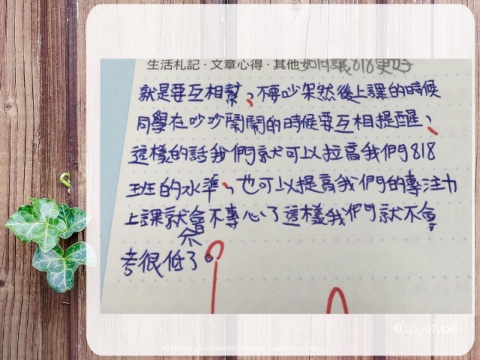 生活札記·文章心得·其他如何讓818更好
就是要互相幫、不要吵架然後上課的時候
同學在吵吵鬧鬧的時候要互相提醒、
這樣的話我們就可以拉高我們818
班的水準、也可以提高我們的專注力
上課就不會不專心了這樣我們就不會
考很低了。
LogoType